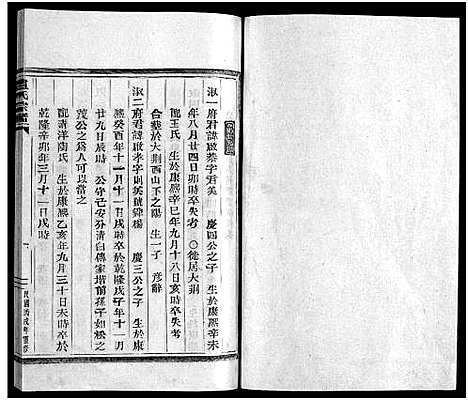 淑一府君諱啟泰字君美　慶四公之子　生於康熙辛未
年八月廿四日卯時卒失考　〇徙居大荆
配王氏　生於康熙辛巳年九月十八日亥時卒失考
合葬於大荆西山下之陽　生一子　彥辭
淑二府君諱啟孝字則英號舜楊　慶三公之子　生於康
熙癸酉年十一月十一日戌時卒於乾隆戊子年十一月
廿九日辰時　公守己安分清白傳家堦前孫子如松之
茂公之為人可以當之
配清洋陶氏　生於康熙乙亥年九月三十日未時卒於
乾隆辛卯年三月十一日戌時